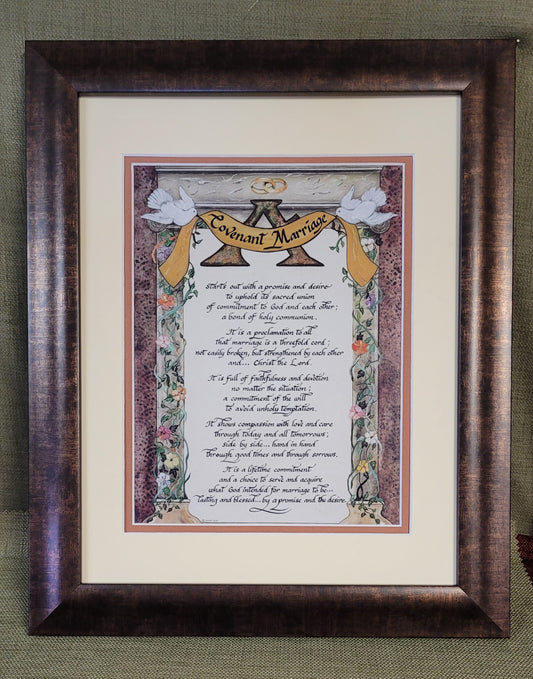 A
Covenant Marriage
starts out with a promise and desire
to uphold its sacred union
of commitment to God and each other;
a bond of holy communion.
It is a proclamation to all
that marriage is a threefold cord;
not easily broken, but strengthened by each other
and... Christ the Lord.
It is full of faithfulness and devotion
no matter the situation;
a commitment of the will
to avoid unholy temptation.
It shows compassion with love and care
through today and all tomorrows;
side by side... hand in hand
through good times and through sorrows.
It is a lifetime commitment
and a choice to serve and acquire
what God intended for marriage to be...
lasting and blessed... by a promise and the desire.